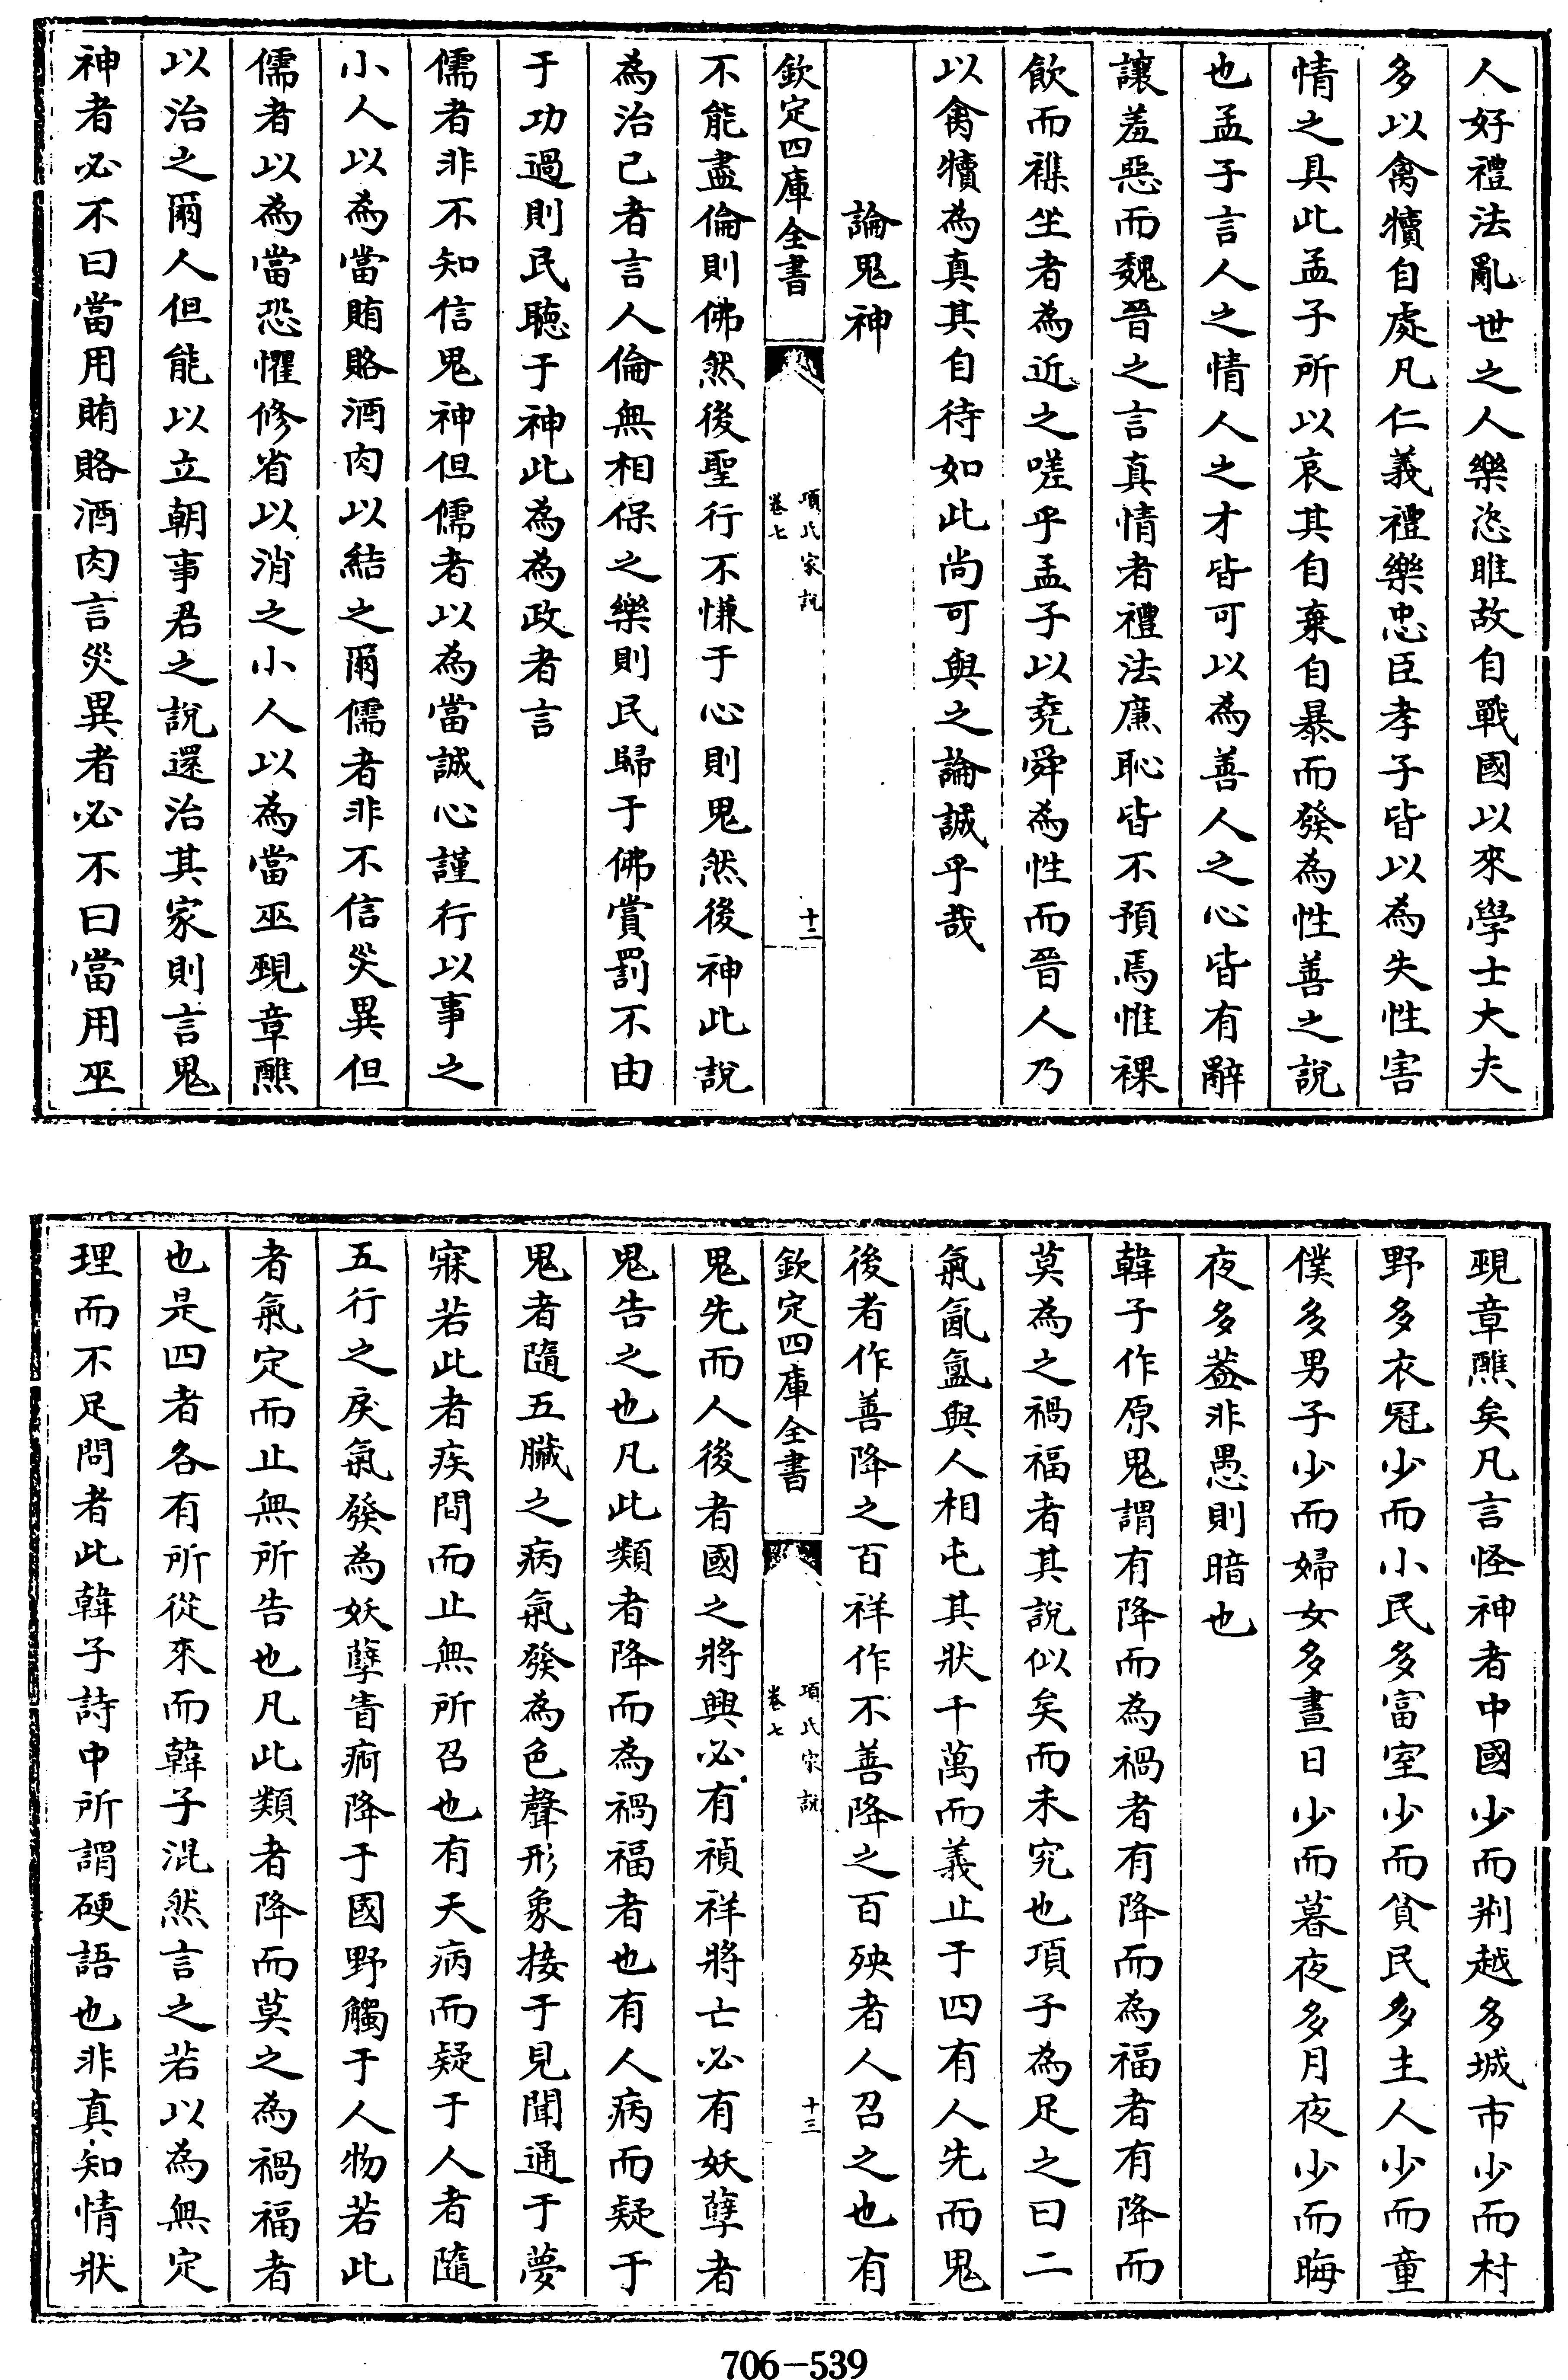 人好禮法亂世之人樂恣睢故自戰國以來學士大夫
多以禽犢自處凡仁義禮樂忠臣孝子皆以為失性害
情之具此孟子所以哀其自棄自暴而發為性善之說
也孟子言人之情人之才皆可以為善人之心皆有辭
讓羞惡而魏晉之言真情者禮法廉恥皆不預焉惟裸
飲而襍坐者為近之嗟乎孟子以堯舜為性而晉人乃
以禽犢為真其自待如此尚可與之論誠乎哉
論鬼神
欽定四庫全書
項氏家說
卷七
十二
不能盡倫則佛然後聖行不慊于心則鬼然後神此說
為治己者言人倫無相保之樂則民歸于佛賞罰不由
于功過則民聽于神此為為政者言
儒者非不知信鬼神但儒者以為當誠心謹行以事之
小人以為當賄賂酒肉以結之爾儒者非不信災異但
儒者以為當恐懼修省以消之小人以為當巫覡章醮
以治之爾人但能以立朝事君之說還治其家則言鬼
神者必不曰當用賄賂酒肉言災異者必不曰當用巫
覡章醮矣凡言怪神者中國少而荆越多城市少而村
野多衣冠少而小民多富室少而貧民多主人少而童
僕多男子少而婦女多晝日少而暮夜多月夜少而晦
夜多葢非愚則暗也
韓子作原鬼謂有降而為禍者有降而為福者有降而
莫為之禍福者其說似矣而未究也項子為足之曰二
氣氤氳與人相屯其狀千萬而義止于四有人先而鬼
後者作善降之百祥作不善降之百殃者人召之也有
欽定四庫全書
項氏家說
卷七
十三
鬼先而人後者國之將興必有禎祥將亡必有妖孽者
鬼告之也凡此類者降而為禍福者也有人病而疑于
鬼者隨五臟之病氣發為色聲形象接于見聞通于夢
寐若此者疾間而止無所召也有天病而疑于人者隨
五行之戾氣發為妖孽眚痾降于國野觸于人物若此
者氣定而止無所告也凡此類者降而莫之為禍福者
也是四者各有所從來而韓子混然言之若以為無定
理而不足問者此韓子詩中所謂硬語也非真知情狀
706-539